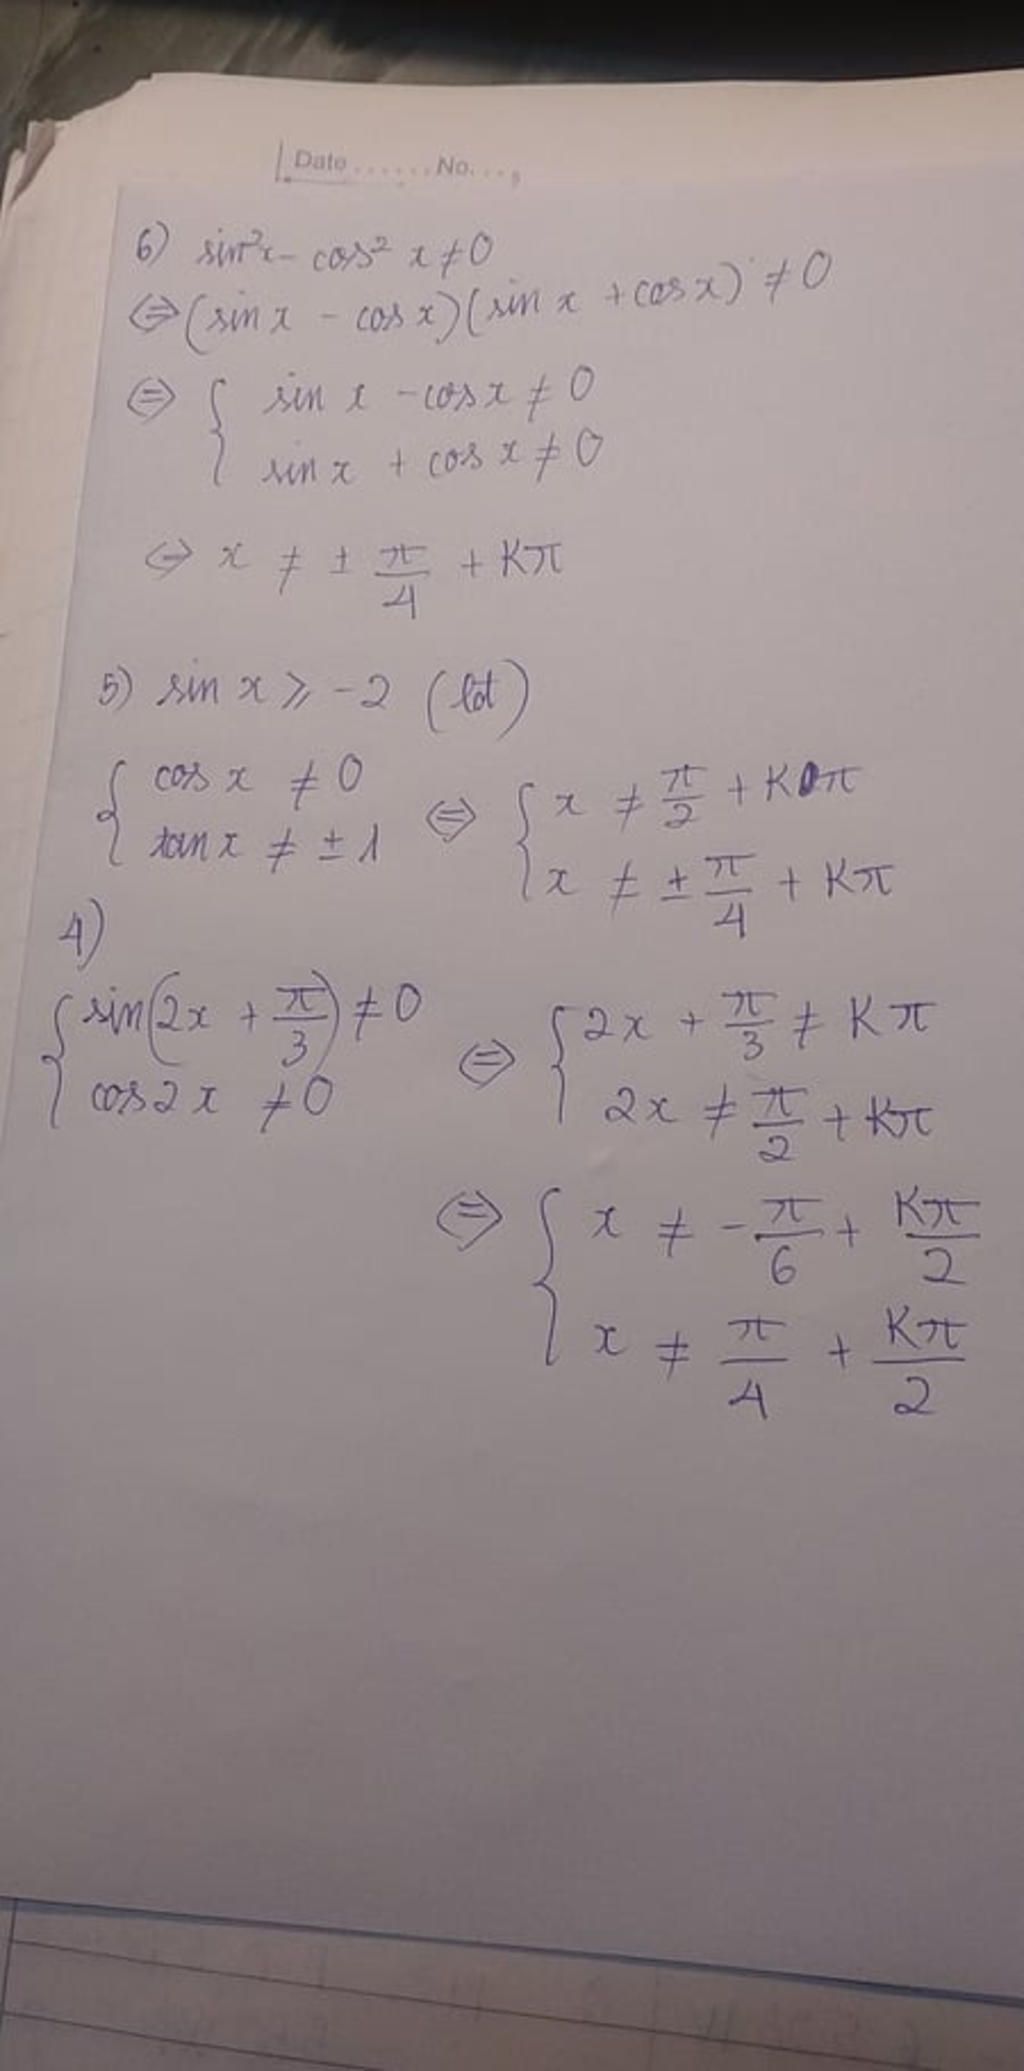 Date ...... No. ...
6) sin²x - cos² x ≠ 0
⇔ (sin x - cos x)(sin x + cos x) ≠ 0
⇔ { sin x - cos x ≠ 0
sin x + cos x ≠ 0
⇔ x ≠ ± π/4 + Kπ
5) sin x ≥ -2 (lđ)
{ cos x ≠ 0 ⇔ { x ≠ π/2 + Kπ
tan x ≠ ± 1 x ≠ ± π/4 + Kπ
4)
{ sin(2x + π/3) ≠ 0 ⇔ { 2x + π/3 ≠ Kπ
cos2x ≠ 0 2x ≠ π/2 + Kπ
⇔ { x ≠ - π/6 + Kπ/2
x ≠ π/4 + Kπ/2